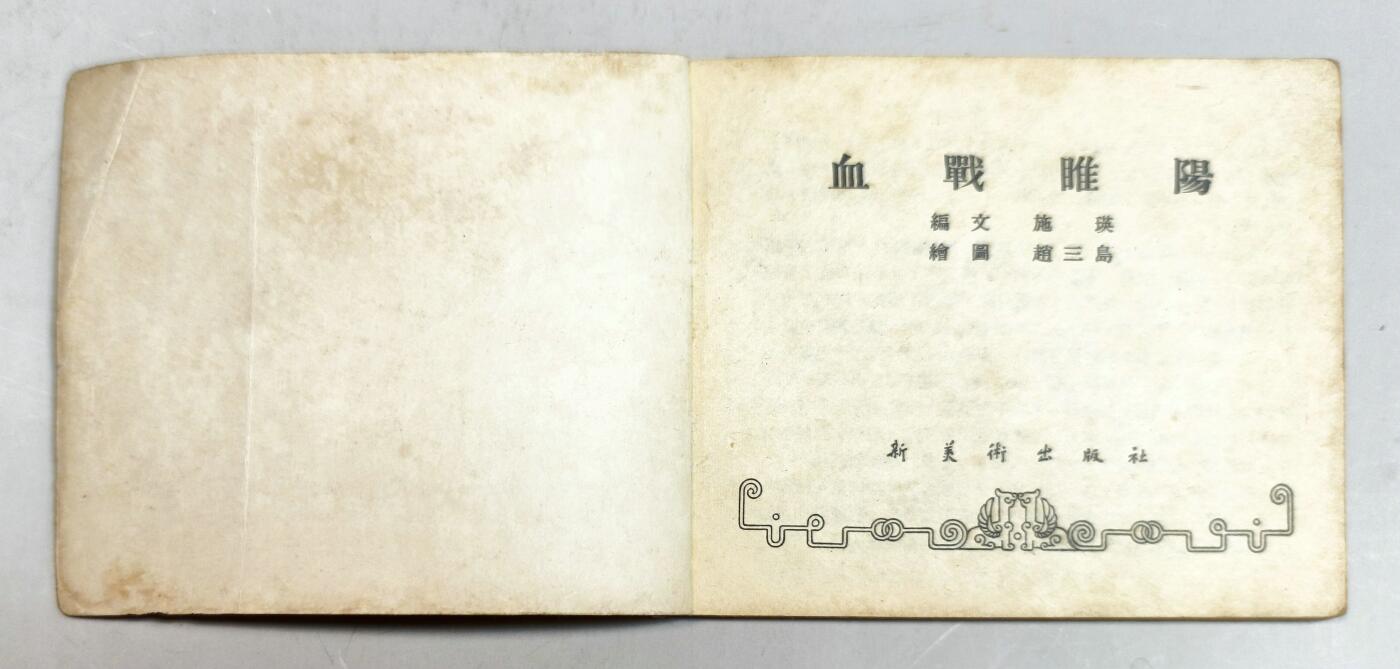 血戰睢陽
編文 施瑛
繪圖 趙三島
新美術出版社